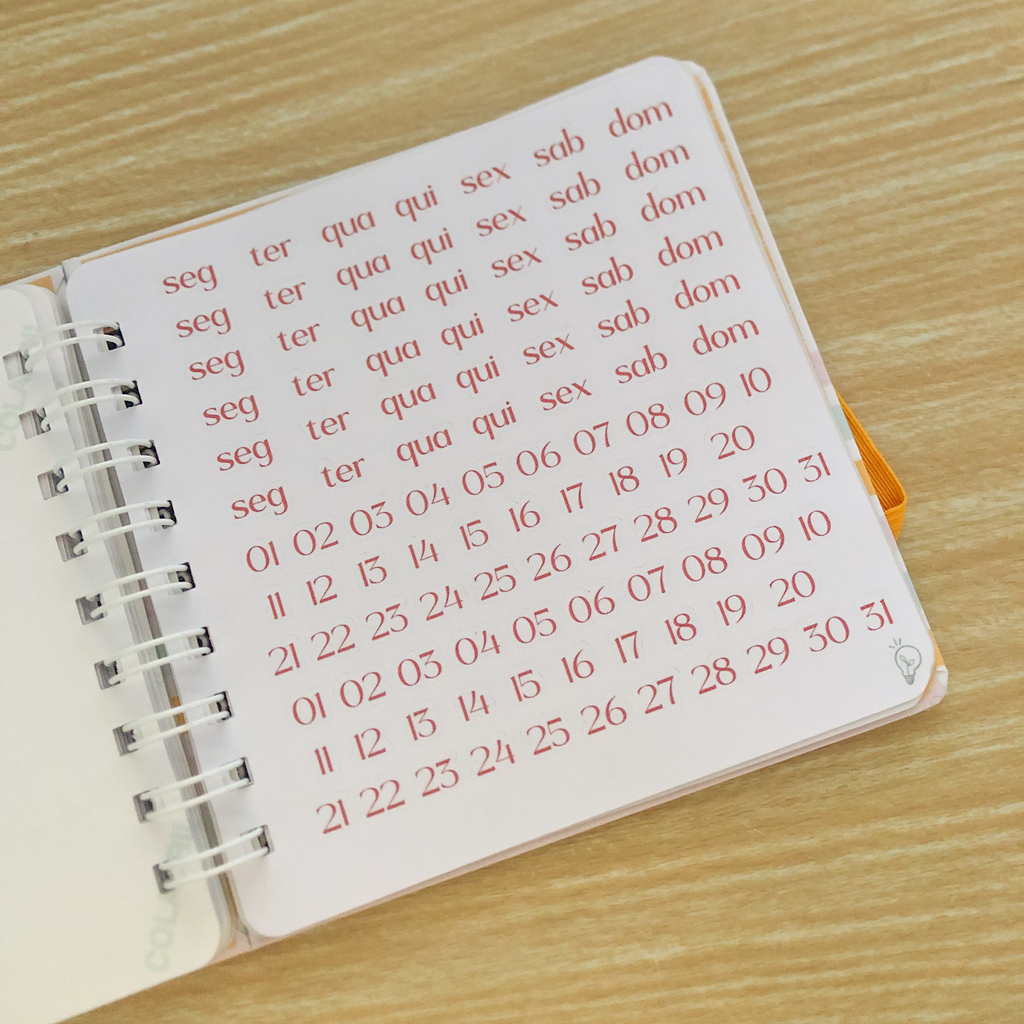 seg ter qua qui sex sab dom
seg ter qua qui sex sab dom
seg ter qua qui sex sab dom
seg ter qua qui sex sab dom
seg ter qua qui sex sab dom
seg ter qua qui sex sab dom
01 02 03 04 05 06 07 08 09 10
11 12 13 14 15 16 17 18 19 20
21 22 23 24 25 26 27 28 29 30 31
01 02 03 04 05 06 07 08 09 10
11 12 13 14 15 16 17 18 19 20
21 22 23 24 25 26 27 28 29 30 31